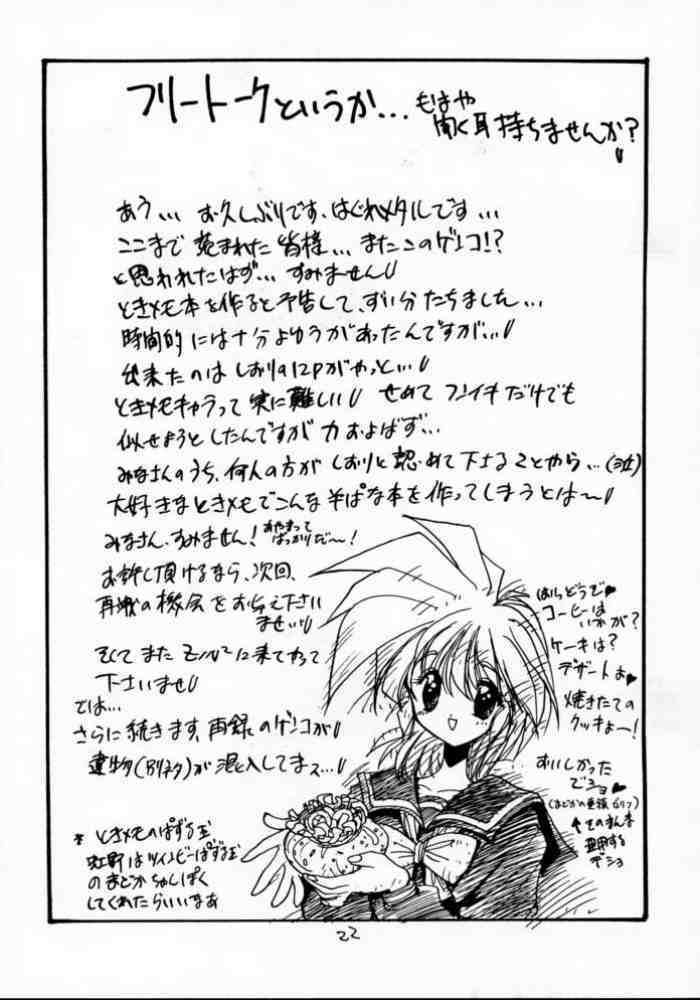 フリートークというか…もはや
聞く耳持ちませんか?
あう… お久しぶりです、はぐれメタルです…
ここまで 読まれた 皆様… またこのゲンコ!?
と思われたはず… すみません
ときメモ本を作ると予告して、ずい分たちました…
時間的には十分よゆうがあったんですが…
出来たのは しおりの12Pがやっと…
ときメモキャラって 実に難しい せめて フンイキだけでも
似せようとしたんですが 力 およばず…
みなさんのうち、何人の方が しおりと認めて下さることやら…
大好きなときメモでこんな そまつな本を作ってしまうとは〜
みなさん、すみません! あやまって
ばっかりだ〜!
お許し頂けるなら、次回、
再戦の機会を お与え下さい
ませ
そして また に来てやって
下さいませ
では…
さらに続きます、再録のゲンコが
遺物(別ネタ)が 混入してます…
はらどうで♥
コーヒーは
いかが?
ケーキは?
デザートよ♥
焼きたての
クッキよー!
おいしかった
でショ♥
(まどかの登場セリフ)
↑そのまんま
登用する
でショ
* ときメモのぱずる玉
虹野はツインビーぱずる玉
のまどかちゃんぽく
してくれたらいいなあ
22